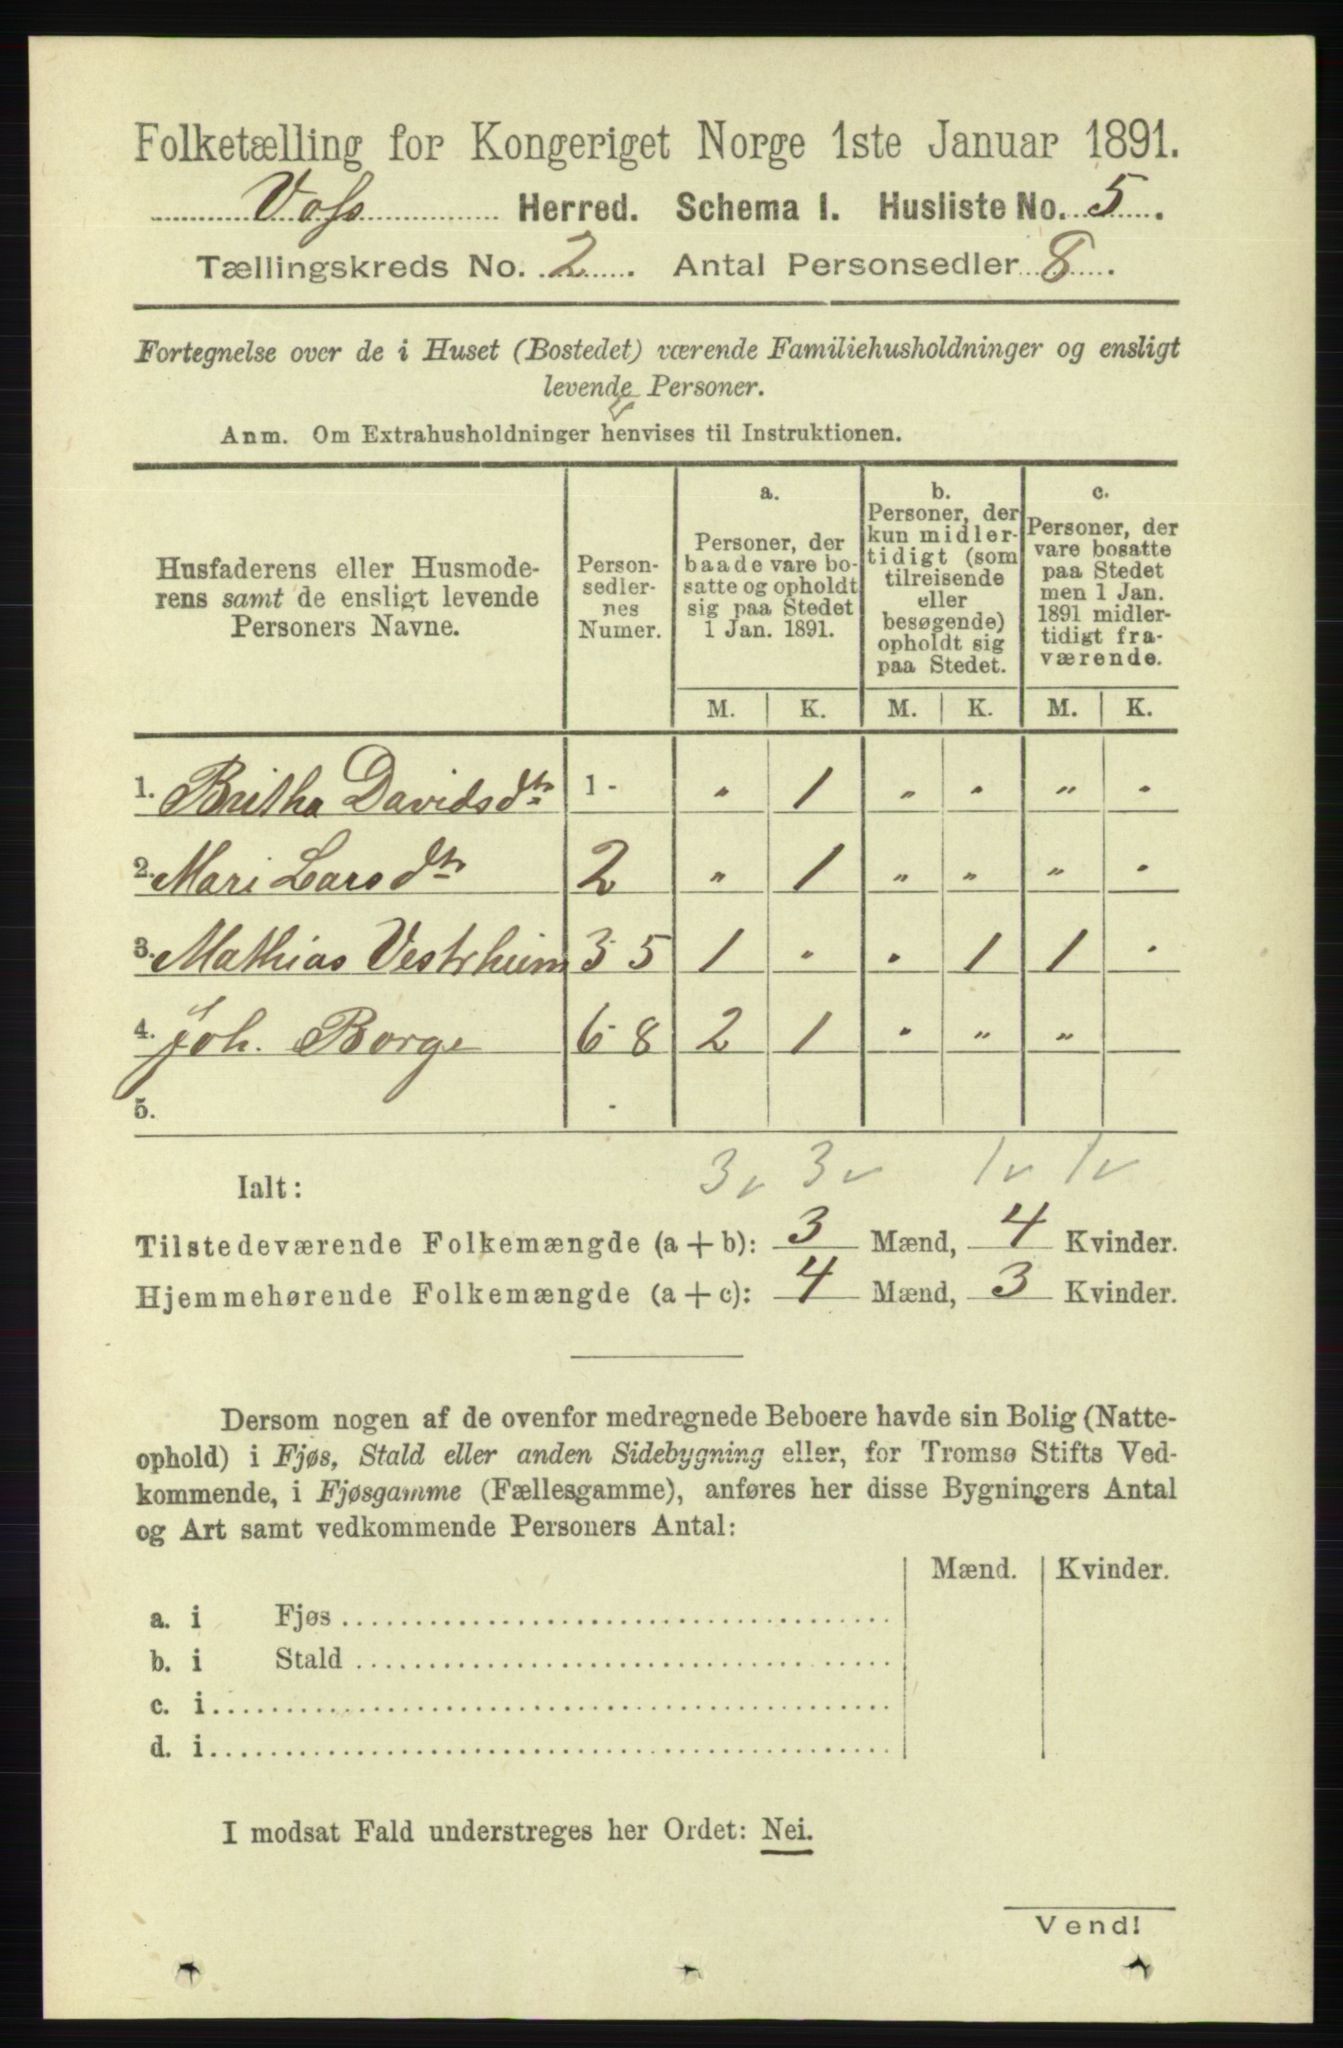 Folketælling for Kongeriget Norge 1ste Januar 1891.
Voss Herred. Schema I. Husliste No. 5.
Tællingskreds No. 2. Antal Personsedler 8.
Fortegnelse over de i Huset (Bostedet) værende Familiehusholdninger og ensligt
levende Personer.
Anm. Om Extrahusholdninger henvises til Instruktionen.
Husfaderens eller Husmode-
rens samt de ensligt levende
Personers Navne.
Person-
sedler-
nes
Numer.
a.
Personer, der
baade vare bo-
satte og opholdt
sig paa Stedet
1 Jan. 1891.
b.
Personer, der
kun midler-
tidigt (som
tilreisende
eller
besøgende)
opholdt sig
paa Stedet.
c.
Personer, der
vare bosatte
paa Stedet
men 1 Jan.
1891 midler-
tidigt fra-
værende.
M. K. M. K. M. K.
1. Britha Davidsdtr 1 - " 1 " " " "
2. Mari Larsdtr 2 " 1 " " " "
3. Mathias Vestrheim 3-5 1 " " 1 1 "
4. Joh. Borge 6-8 2 1 " " "
5.
Ialt: 3 3 1 1
Tilstedeværende Folkemængde (a + b): 3 Mænd, 4 Kvinder.
Hjemmehørende Folkemængde (a + c): 4 Mænd, 3 Kvinder.
Dersom nogen af de ovenfor medregnede Beboere havde sin Bolig (Natte-
ophold) i Fjøs, Stald eller anden Sidebygning eller, for Tromsø Stifts Ved-
kommende, i Fjøsgamme (Fællesgamme), anføres her disse Bygningers Antal
og Art samt vedkommende Personers Antal:
Mænd. Kvinder.
a. i Fjøs
b. i Stald
c. i
d. i
I modsat Fald understreges her Ordet: Nei.
Vend!